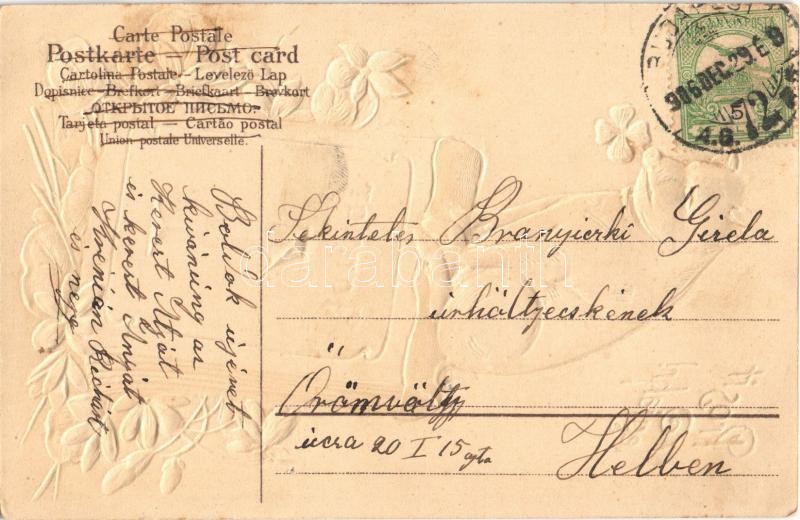 Carte Postale
Postkarte — Post card
Cartolina Postale — Levelező Lap
Dopisnice — Brefkort — Briefkaart — Brevkort
ОТКРЫТОЕ ПИСЬМО.
Tarjeta postal — Cartão postal
Union postale Universelle.
906 DEC. 29. E 8
5
72
Boldok ujévet
kivánúng as
Kerert Atyát
és kerert Anyát
és neje
Tekintetes Branyiczki Gizela
úrhöltyecskének
Örömvölty
úcza 20 I 15 ajta
Helben
darabanth